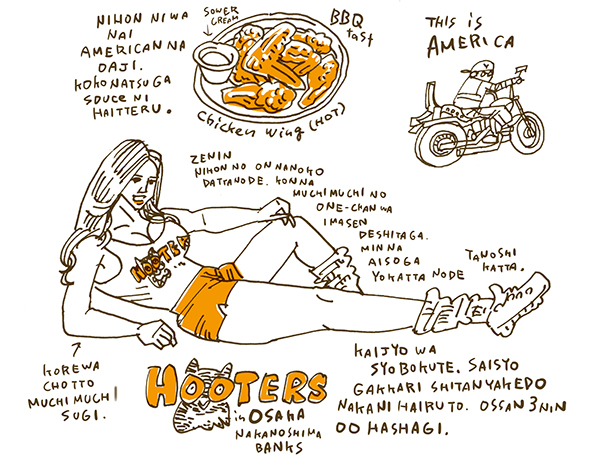 NIHON NIWA
NAI
AMERICAN NA
OAJI.
KOKONATSU GA
SOUCE NI
HAITTERU.
SOWER
CREAM
BBQ
tast
Chicken wing (HOT)
THIS is
AMERICA
ZENIN
NIHON NO ONNANOKO
DATTANODE. KONNA
MUCHI MUCHI NO
ONE-CHAN WA
IMASEN
DESHITAGA.
MINNA
AISOGA
YOKATTA NODE
TANOSHI
KATTA.
HOOTERS
KOREWA
CHOTTO
MUCHI MUCHI
SUGI.
HOOTERS
in OSAKA
NAKANOSHIMA
BANKS
KAIJYO WA
SYOBOKUTE. SAISYO
GAKKARI SHITANYAKEDO
NAKANI HAIRUTO. OSSAN 3NIN
OO HASHAGI.